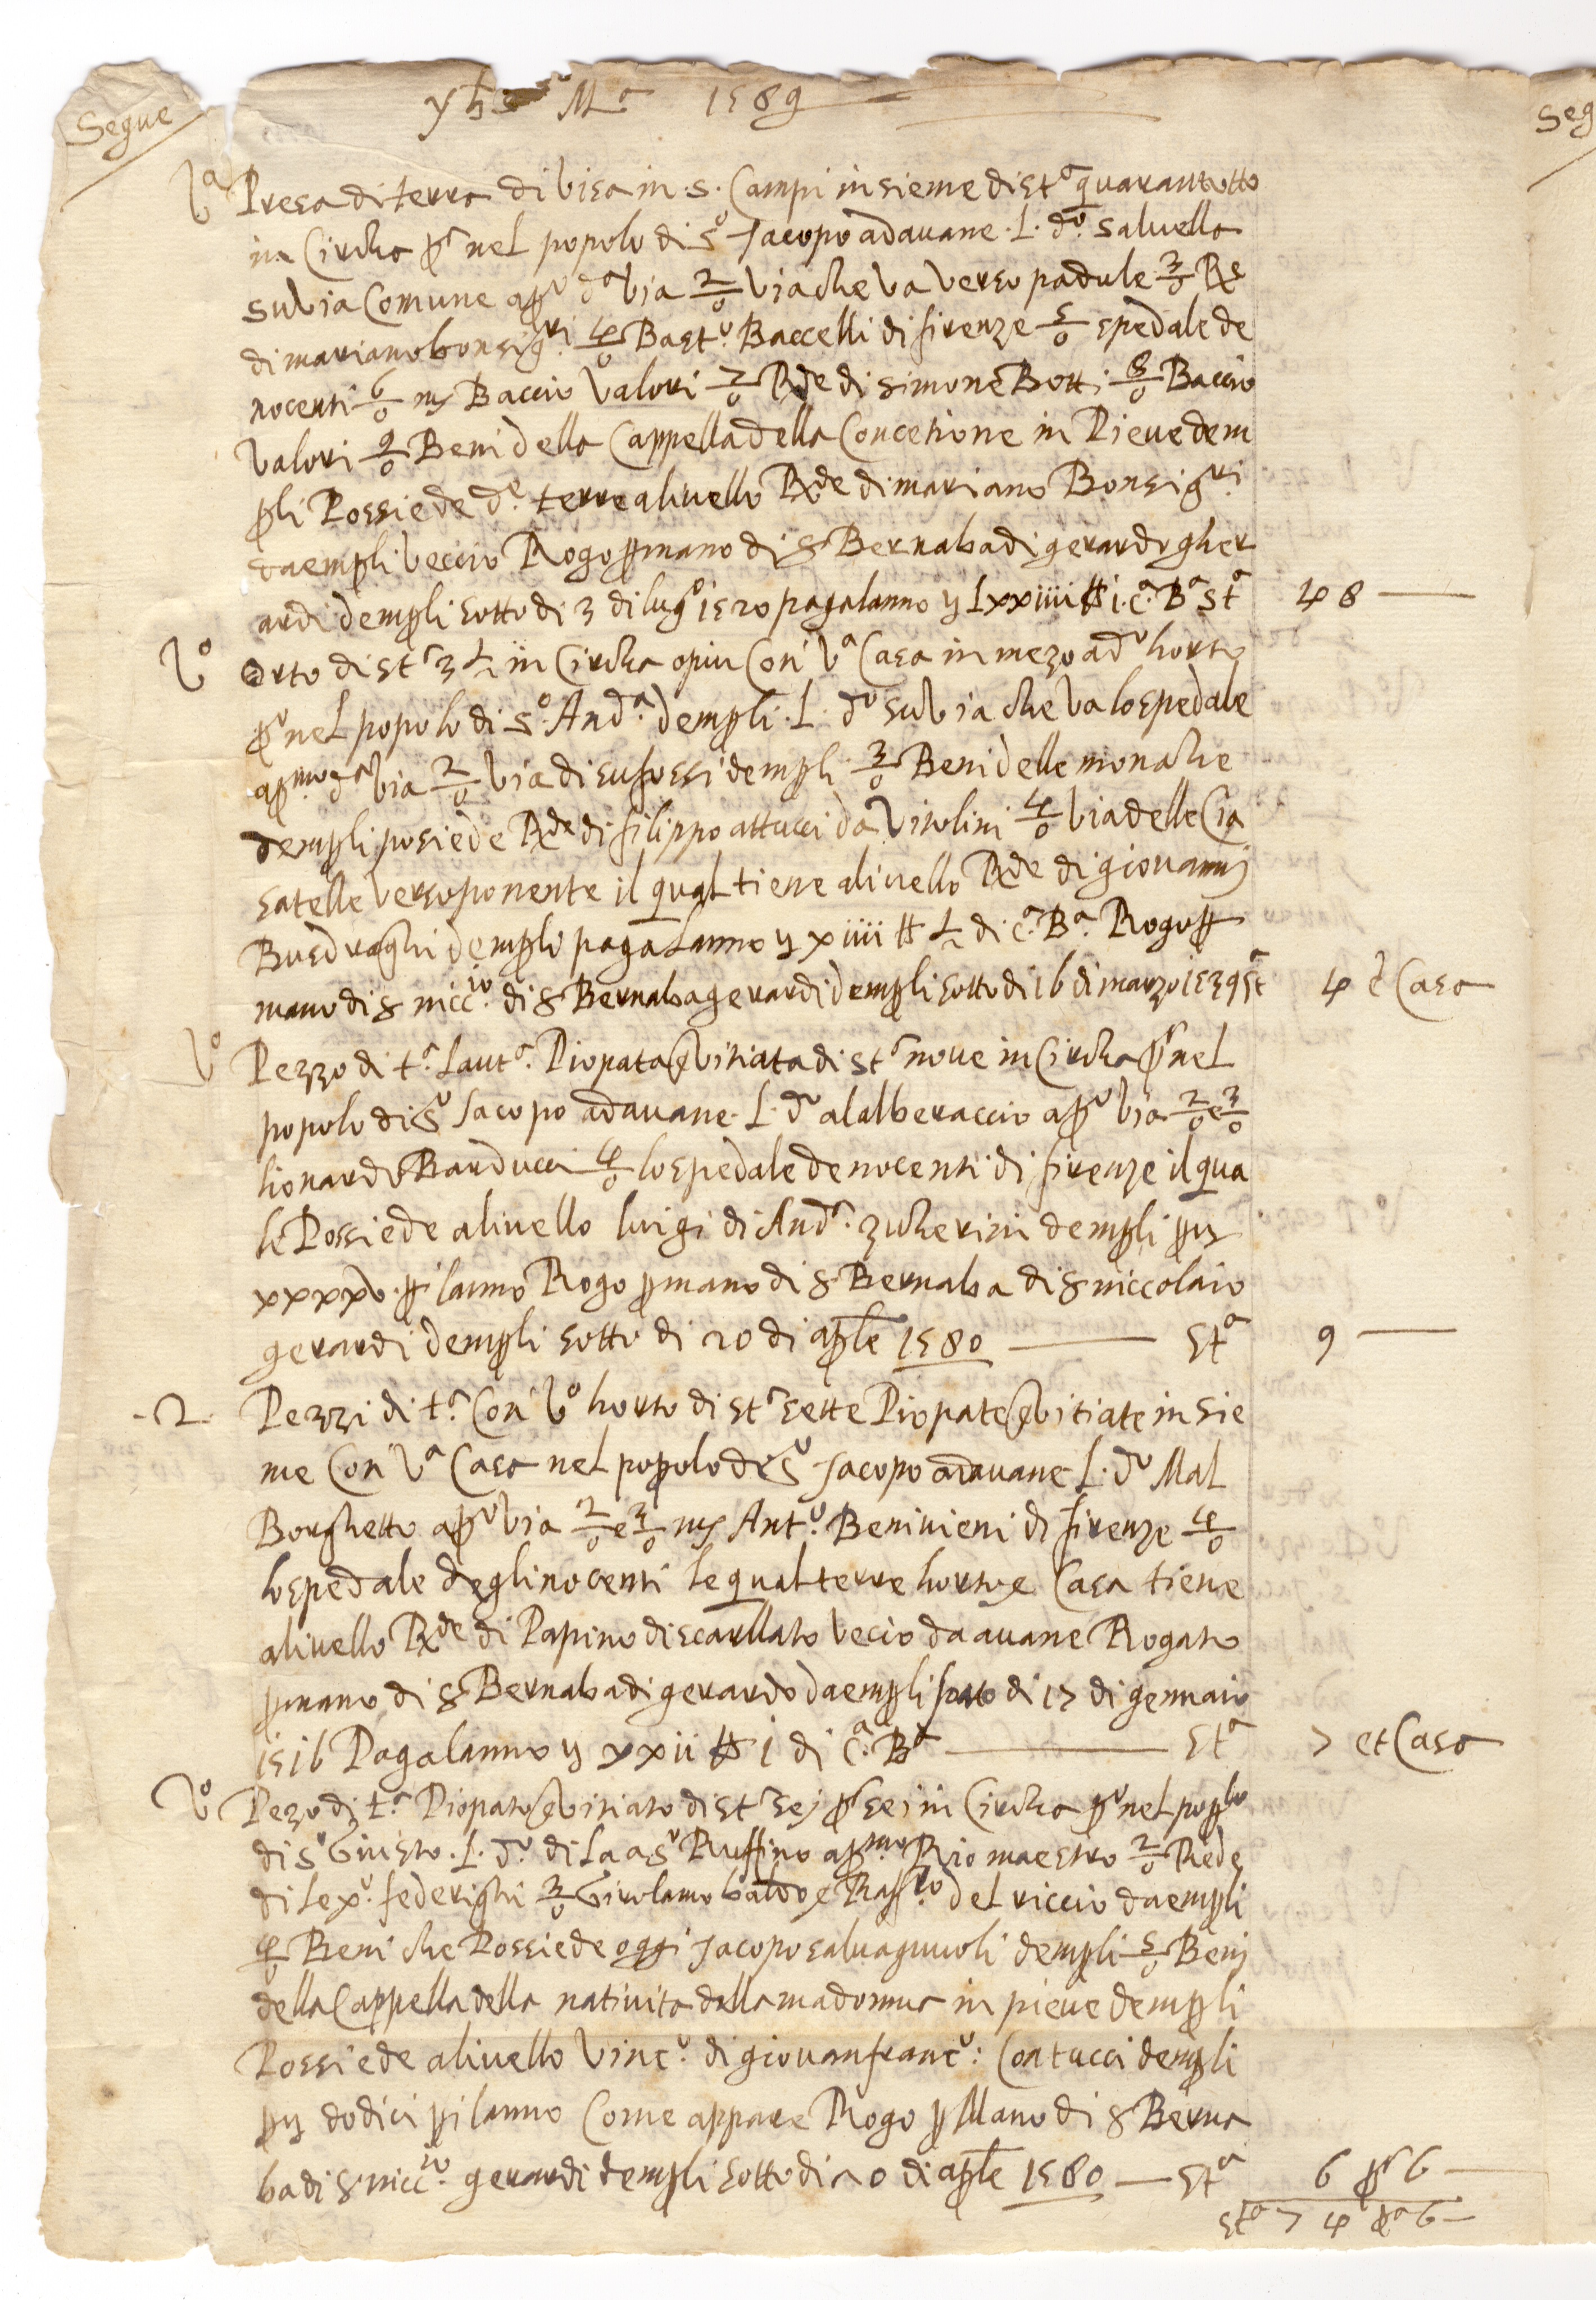 Segue
yhs Mª 1589
Seg
Vª Presa di terra divisa in .5. Campi insieme di stª quarantotto
in Circha pª nel popolo di Sº Jacopo ad avane .L. dº. Salvella
su via Comune apº dª via 2/0 via che va verso padule 3/0 Rde
di mariano bonsigri. 4/0 Bastº. Baccelli di firenze 5/0 spedale de
nocenti 6/0 mſ Baccio Valori 7/0 Rde di simone Botti 8/0 Baccio
Valori 9/0 Beni della Cappella della Concetione in Pieve dem
pli Possiede dº. terre a livello Rde di mariano Bonsigri.
da empli veccio Rogo p mano di S Bernaba di gerardo gher
ardi dempli sotto di 3 di lugº 1520 paga lanno y Lxxiiii ₶ i. cª. Bª stª 48 —
Vº Orto di stª 3 ½ in Circha o piu Con Vª Casa in mezo a dº horto
pº nel popolo di Sº. Andª. dempli .L. dº su via che va lospedale
apmo dª via 2/0 via di su fossi dempli 3/0 Beni delle monache
dempli posiede Rde di filippo attucci da Vitolini 4/0 via delle Cia
satelle verso ponente il qual tiene a livello Rde di giovannj
Busdraghi dempli paga lanno y xiiii ₶ ½ di cª. Bª. Rogo p
mano di S niccio. di S Bernaba gerardi dempli sotto di 16 di marzo 1539 stª 4 è Casa
Vº Pezzo di tª. Lavtª. Piopata e vitiata di stª nove in Circha pª nel
popolo di Sº Jacopo ad avane .L. dº al alberaccio apº via 2/0 e 3/0
lionardo Barducci 4/0 lospedale de nocenti di firenze il qua
le Possiede a livello luigi di Andª. zucherini dempli p y
xxxxv. p lanno Rogo p mano di S Bernaba di S niccolaio
gerardi dempli sotto di 20 di aple 1580 — Stª 9 —
.2. Pezzi di tª. Con Vº horto di stª sette Piopate e vitiate in sie
me Con Vª Casa nel popolo di Sº Jacopo ad avane .L. dº Mal
Borghetto apº via 2/0 e 3/0 mſ Antº. Benivieni di firenze 4/0
lospedale deglinocenti le qual terre horto e Casa tiene
a livello Rde di Papino di scarllato vecio da avane Rogato
p mano di S Bernaba di gerardo da empli sotto di 17 di gennaio
1516 Paga lanno y xxii ₶ i di cª. Bª — Stª 7 et Casa
Vº Pezo di tª. Piopato e vitiato di stª sej pª sei in Circha pº nel popplo
di Sº Giusto .L. dº. di la a Sº Ruffino apmo Rio maestro 2/0 Rede
di lexº. federighi 3/0 Girolamo baldo e Raffllo del riccio da empli
4/0 Beni che Possiede oggi Jacopo salvagnuoli dempli 5/0 Benj
della Cappella della nativita della madonna in pieve dempli
Possiede a livello Vincº. di giovanfrancº: Contucci dempli
p y dodici p i lanno Come appare Rogo p Mano di S Berna
ba di S niccio. gerardi dempli sotto di 20 di aple 1580 — Stª 6 pª 6 —
stª 74 pª 6 —